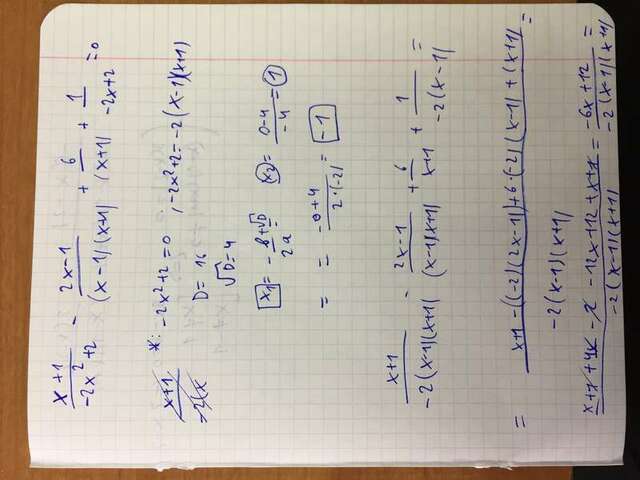 (x+1)/(-2x²+2) - (2x-1)/((x-1)(x+1)) + 6/(x+1) + 1/(-2x+2) = 0
*: -2x²+2=0, -2x²+2=-2(x-1)(x+1)
D=16
√D=4
x1 = -b+√D / 2a   x2 = (0-4)/(-4) = 1
= = (-0+4)/(2·(-2)) = -1
(x+1)/(-2(x-1)(x+1)) - (2x-1)/((x-1)(x+1)) + 6/(x+1) + 1/(-2(x-1)) =
= (x+1-((-2)(2x-1))+6·(-2)(x-1)+(x+1))/(-2(x-1)(x+1)) =
-12x+12+x+1 = (-6x+12)/(-2(x-1)(x+1)) =
-2(x-1)(x+1)